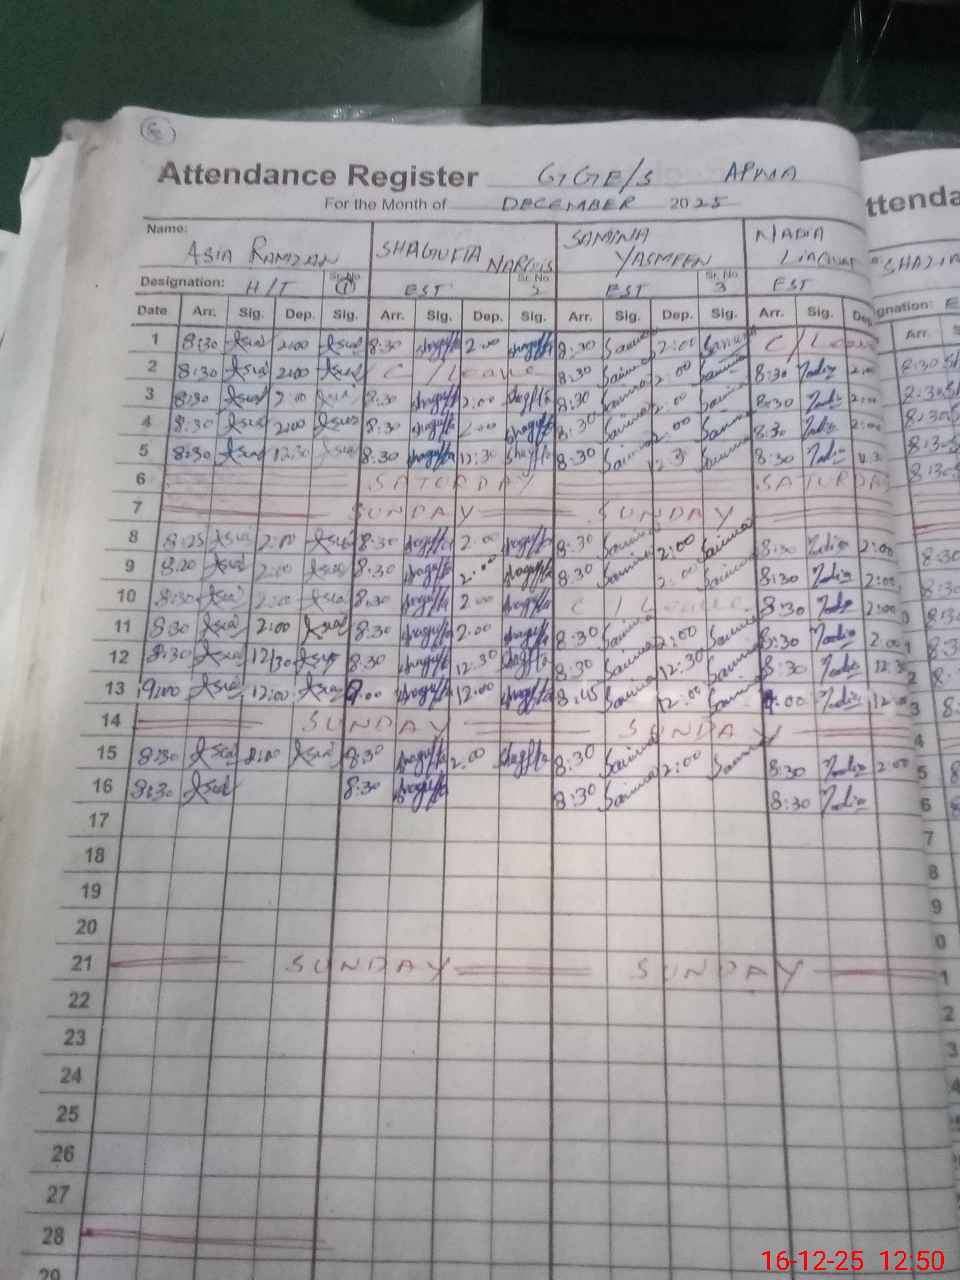 Attendance Register GGE/S APWA
For the Month of DECEMBER 2025
Name: ASIA RAMZAN SHAGUFTA NARGIS SAMINA YASMEEN NADIA LIAQUAT SHAZIA
Designation: H/T Sr. No. 1 EST Sr. No. 2 EST Sr. No. 3 EST
Date Arr. Sig. Dep. Sig. Arr. Sig. Dep. Sig. Arr. Sig. Dep. Sig. Arr. Sig. Dep Arr.
1 8:30 Asia 2:00 Asia 8:30 Shagufta 2:00 Shagufta 8:30 Samina 2:00 Samina C/Leave
2 8:30 Asia 2:00 Asia C/Leave 8:30 Samina 2:00 Samina 8:30 Nadia 2:00
3 8:30 Asia 2:00 Asia 8:30 Shagufta 2:00 Shagufta 8:30 Samina 2:00 Samina 8:30 Nadia 2:00
4 8:30 Asia 2:00 Asia 8:30 Shagufta 2:00 Shagufta 8:30 Samina 2:00 Samina 8:30 Nadia 2:00
5 8:30 Asia 12:30 Asia 8:30 Shagufta 12:30 Shagufta 8:30 Samina 12:30 Samina 8:30 Nadia 12:30
6 SATURDAY SATURDAY
7 SUNDAY SUNDAY
8 8:25 Asia 2:00 Asia 8:30 Shagufta 2:00 Shagufta 8:30 Samina 2:00 Samina 8:30 Nadia 2:00
9 8:20 Asia 2:00 Asia 8:30 Shagufta 2:00 Shagufta 8:30 Samina 2:00 Samina 8:30 Nadia 2:00
10 8:30 Asia 2:00 Asia 8:30 Shagufta 2:00 Shagufta C/Leave 8:30 Nadia 2:00
11 8:30 Asia 2:00 Asia 8:30 Shagufta 2:00 Shagufta 8:30 Samina 2:00 Samina 8:30 Nadia 2:00
12 8:30 Asia 12:30 Asia 8:30 Shagufta 12:30 Shagufta 8:30 Samina 12:30 Samina 8:30 Nadia 12:30
13 9:00 Asia 12:00 Asia 9:00 Shagufta 12:00 Shagufta 8:45 Samina 12:00 Samina 9:00 Nadia 12:00
14 SUNDAY SUNDAY
15 8:30 Asia 2:00 Asia 8:30 Shagufta 2:00 Shagufta 8:30 Samina 2:00 Samina 8:30 Nadia 2:00
16 8:30 Asia 8:30 Shagufta 8:30 Samina 8:30 Nadia
17
18
19
20
21 SUNDAY SUNDAY
22
23
24
25
26
27
28
29
16-12-25 12:50